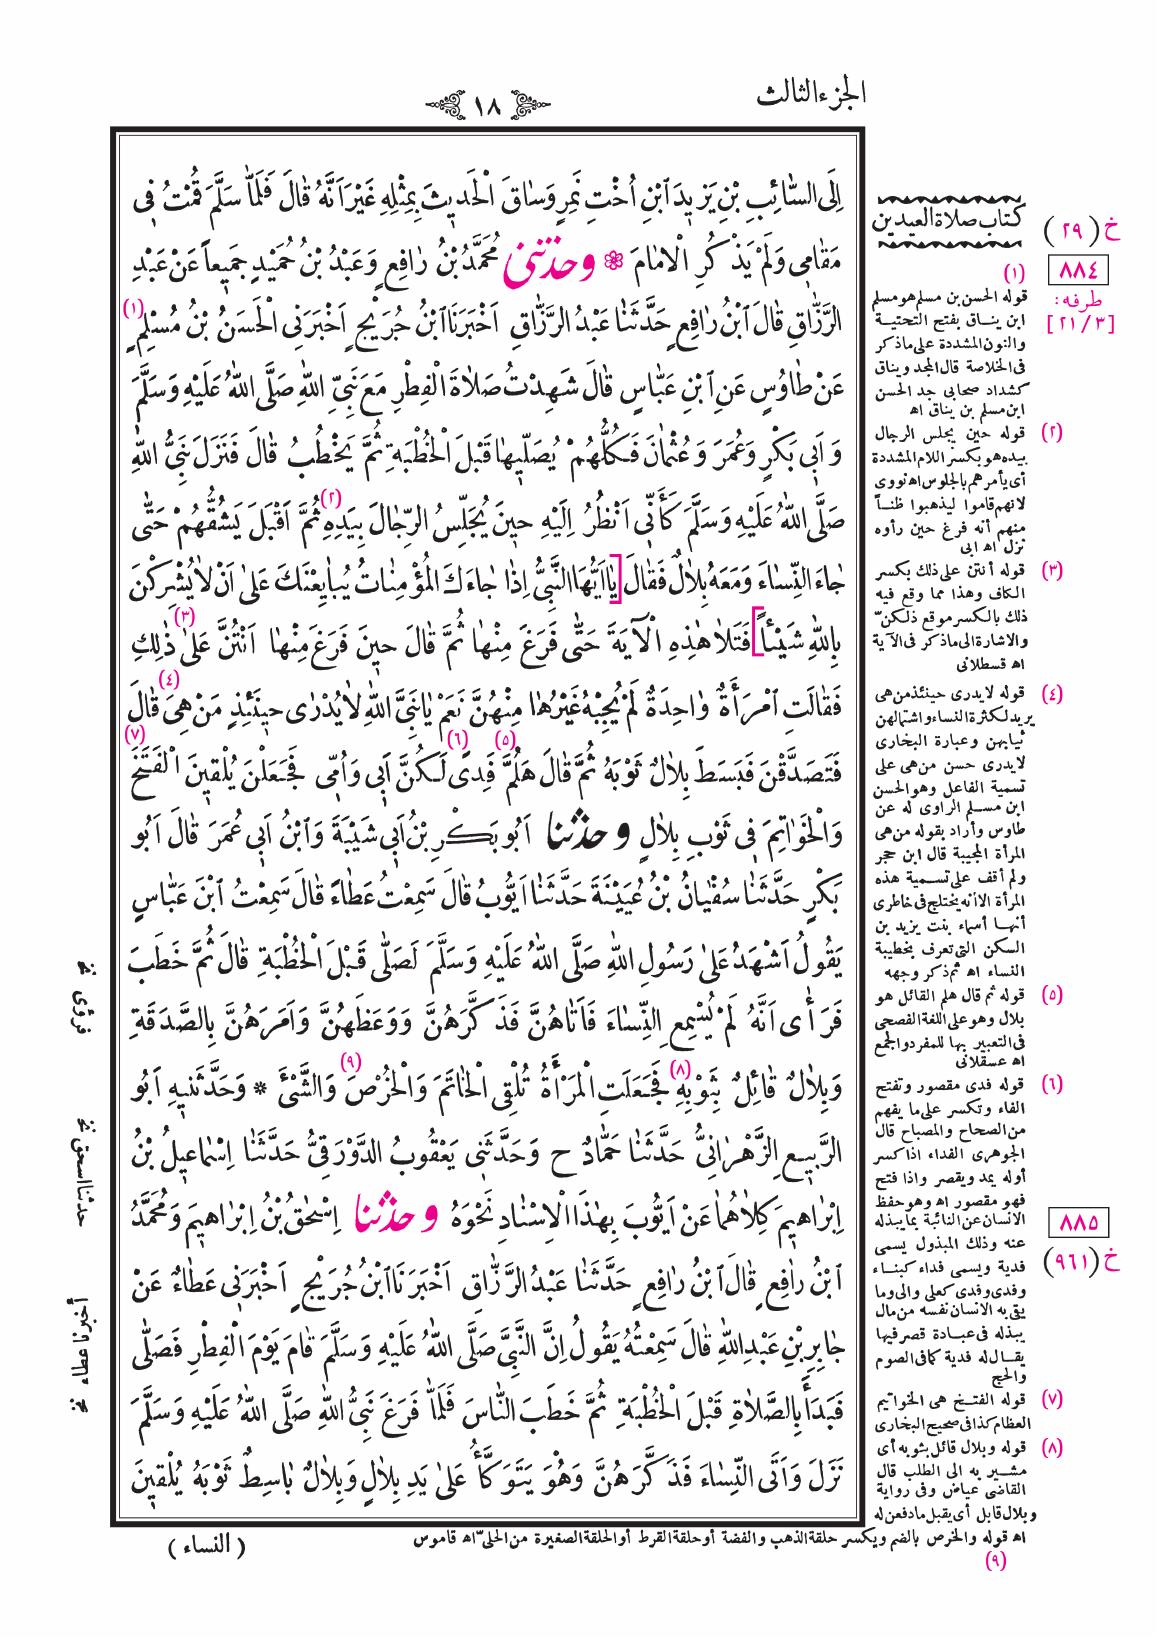 الجزء الثالث
١٨
اِلَى السَّائِبِ بْنِ يَزيدَ ابْنِ اُخْتِ نَمِرٍ وَسَاقَ الْحَديثَ بِمِثْلِهِ غَيْرَ اَنَّهُ قَالَ فَلَمَّا سَلَّمَ قُمْتُ فِى
مَقَامِى وَلَمْ يَذْكُرِ الْاِمَامَ ۞ وحَدَّثَنِى مُحَمَّدُ بْنُ رَافِعٍ وَعَبْدُ بْنُ حُمَيْدٍ جَميعاً عَنْ عَبْدِ
الرَّزَّاقِ قَالَ ابْنُ رَافِعٍ حَدَّثَنَا عَبْدُ الرَّزَّاقِ اَخْبَرَنَا ابْنُ جُرَيْجٍ اَخْبَرَنِى الْحَسَنُ بْنُ مُسْلِمٍ (١)
عَنْ طَاوُسٍ عَنِ ابْنِ عَبَّاسٍ قَالَ شَهِدْتُ صَلَاةَ الْفِطْرِ مَعَ نَبِىِّ اللهِ صَلَّى اللهُ عَلَيْهِ وَسَلَّمَ
وَاَبِى بَكْرٍ وَعُمَرَ وَعُثْمَانَ فَكُلُّهُمْ يُصَلّيهَا قَبْلَ الْخُطْبَةِ ثُمَّ يَخْطُبُ قَالَ فَنَزَلَ نَبِىُّ اللهِ
صَلَّى اللهُ عَلَيْهِ وَسَلَّمَ كَاَنّى اَنْظُرُ اِلَيْهِ حينَ يُجَلِّسُ الرِّجَالَ بِيَدِهِ (٢) ثُمَّ اَقْبَلَ يَشُقُّهُمْ حَتّٰى
جَاءَ النِّسَاءَ وَمَعَهُ بِلَالٌ فَقَالَ [يَا اَيُّهَا النَّبِىُّ اِذَا جَاءَكَ الْمُؤْمِنَاتُ يُبَايِعْنَكَ عَلٰى اَنْ لَا يُشْرِكْنَ
بِاللهِ شَيْئاً] فَتَلَا هٰذِهِ الْآيَةَ حَتّٰى فَرَغَ مِنْهَا ثُمَّ قَالَ حينَ فَرَغَ مِنْهَا اَنْتُنَّ عَلٰى (٣) ذٰلِكِ
فَقَالَتِ امْرَأَةٌ وَاحِدَةٌ لَمْ يُجِبْهُ غَيْرُهَا مِنْهُنَّ نَعَمْ يَا نَبِىَّ اللهِ لَا يُدْرٰى حينَئِذٍ مَنْ هِىَ (٤) قَالَ
فَتَصَدَّقْنَ فَبَسَطَ بِلَالٌ ثَوْبَهُ ثُمَّ قَالَ هَلُمَّ (٥) فِدًى (٦) لَكُنَّ اَبِى وَاُمّى فَجَعَلْنَ يُلْقينَ الْفَتَخَ (٧)
وَالْخَوَاتِمَ فِى ثَوْبِ بِلَالٍ وحَدَّثَنَا اَبُو بَكْرِ بْنُ اَبِى شَيْبَةَ وَابْنُ اَبِى عُمَرَ قَالَ اَبُو
بَكْرٍ حَدَّثَنَا سُفْيَانُ بْنُ عُيَيْنَةَ حَدَّثَنَا اَيُّوبُ قَالَ سَمِعْتُ عَطَاءً قَالَ سَمِعْتُ ابْنَ عَبَّاسٍ
يَقُولُ اَشْهَدُ عَلٰى رَسُولِ اللهِ صَلَّى اللهُ عَلَيْهِ وَسَلَّمَ لَصَلّٰى قَبْلَ الْخُطْبَةِ قَالَ ثُمَّ خَطَبَ
فَرَأٰى اَنَّهُ لَمْ يُسْمِعِ النِّسَاءَ فَاَتَاهُنَّ فَذَكَّرَهُنَّ وَوَعَظَهُنَّ وَاَمَرَهُنَّ بِالصَّدَقَةِ
وَبِلَالٌ قَائِلٌ بِثَوْبِهِ (٨) فَجَعَلَتِ الْمَرْأَةُ تُلْقِى الْخَاتَمَ وَالْخُرْصَ (٩) وَالشَّىْءَ * وَحَدَّثَنيهِ اَبُو
الرَّبيعِ الزَّهْرَانِىُّ حَدَّثَنَا حَمَّادٌ ح وَحَدَّثَنِى يَعْقُوبُ الدَّوْرَقِىُّ حَدَّثَنَا اِسْمَاعيلُ بْنُ
اِبْرَاهيمَ كِلَاهُمَا عَنْ اَيُّوبَ بِهٰذَا الْاِسْنَادِ نَحْوَهُ وحَدَّثَنَا اِسْحٰقُ بْنُ اِبْرَاهيمَ وَمُحَمَّدُ
ابْنُ رَافِعٍ قَالَ ابْنُ رَافِعٍ حَدَّثَنَا عَبْدُ الرَّزَّاقِ اَخْبَرَنَا ابْنُ جُرَيْجٍ اَخْبَرَنِى عَطَاءٌ عَنْ
جَابِرِ بْنِ عَبْدِ اللهِ قَالَ سَمِعْتُهُ يَقُولُ اِنَّ النَّبِىَّ صَلَّى اللهُ عَلَيْهِ وَسَلَّمَ قَامَ يَوْمَ الْفِطْرِ فَصَلّٰى
فَبَدَأَ بِالصَّلَاةِ قَبْلَ الْخُطْبَةِ ثُمَّ خَطَبَ النَّاسَ فَلَمَّا فَرَغَ نَبِىُّ اللهِ صَلَّى اللهُ عَلَيْهِ وَسَلَّمَ
نَزَلَ وَاَتَى النِّسَاءَ فَذَكَّرَهُنَّ وَهُوَ يَتَوَكَّأُ عَلٰى يَدِ بِلَالٍ وَبِلَالٌ بَاسِطٌ ثَوْبَهُ يُلْقينَ
( النساء )
كتاب صلاة العيدين
خ ( ٢٩ )
٨٨٤
طرفه:
[٢١/٣]
(١)
قوله الحسن بن مسلم هو مسلم
ابن ينــاق بفتح التحتيــة
والنون المشددة على ما ذكر
فى الخلاصة قال المجد ويناق
كشداد صحابى جد الحسن
ابن مسلم بن يناق اه
(٢) قوله حين يجلس الرجال
بيده هو بكسر اللام المشددة
أى يأمرهم بالجلوس اه نووى
لانهم قاموا ليذهبوا ظنــاً
منهم أنه فرغ حين رأوه
نزل اه ابى
(٣) قوله أنتن على ذلك بكسر
الكاف وهذا مما وقع فيه
ذلك بالكسر موقع ذلكنّ
والاشارة الى ما ذكر فى الآية
اه قسطلانى
(٤) قوله لا يدرى حينئذ من هى
يريد لكثرة النساء واشتمالهن
ثيابهن وعبارة البخارى
لا يدرى حسن من هى على
تسمية الفاعل وهو الحسن
ابن مسلم الراوى له عن
طاوس وأراد بقوله من هى
المرأة المجيبة قال ابن حجر
ولم أقف على تسمية هذه
المرأة الا أنه يختلج فى خاطرى
أنهــا أسماء بنت يزيد بن
السكن التى تعرف بخطيبة
النساء اه ثم ذكر وجهه
(٥) قوله ثم قال هلم القائل هو
بلال وهو على اللغة الفصحى
فى التعبير بها للمفرد والجمع
اه عسقلانى
(٦) قوله فدى مقصور وتفتح
الفاء وتكسر على ما يفهم
من الصحاح والمصباح قال
الجوهرى الفداء اذا كسر
أوله يمد ويقصر واذا فتح
فهو مقصور اه وهو حفظ
الانسان عن النائبة بما يبذله
عنه وذلك المبذول يسمى
فدية ويسمى فداء كبنــاء
وفدى وفدى كعلى والى وما
يقى به الانسان نفسه من مال
يبذله فى عبــادة قصر فيها
يقــال له فدية كما فى الصوم
والحج
(٧) قوله الفتــخ هى الخواتيم
العظام كذا فى صحيح البخارى
(٨) قوله وبلال قائل بثوبه أى
مشــير به الى الطلب قال
القاضى عياض وفى رواية
وبلال قابل أى يقبل ما دفعن له
اه قوله والخرص بالضم ويكسر حلقة الذهب والفضة أو حلقة القرط أو الحلقة الصغيرة من الحلىّ اه قاموس
(٩)
٨٨٥
خ (٩٦١)
فرؤى نخ
حدثنا اسحق نخ
أخبرنا عطاء نخ